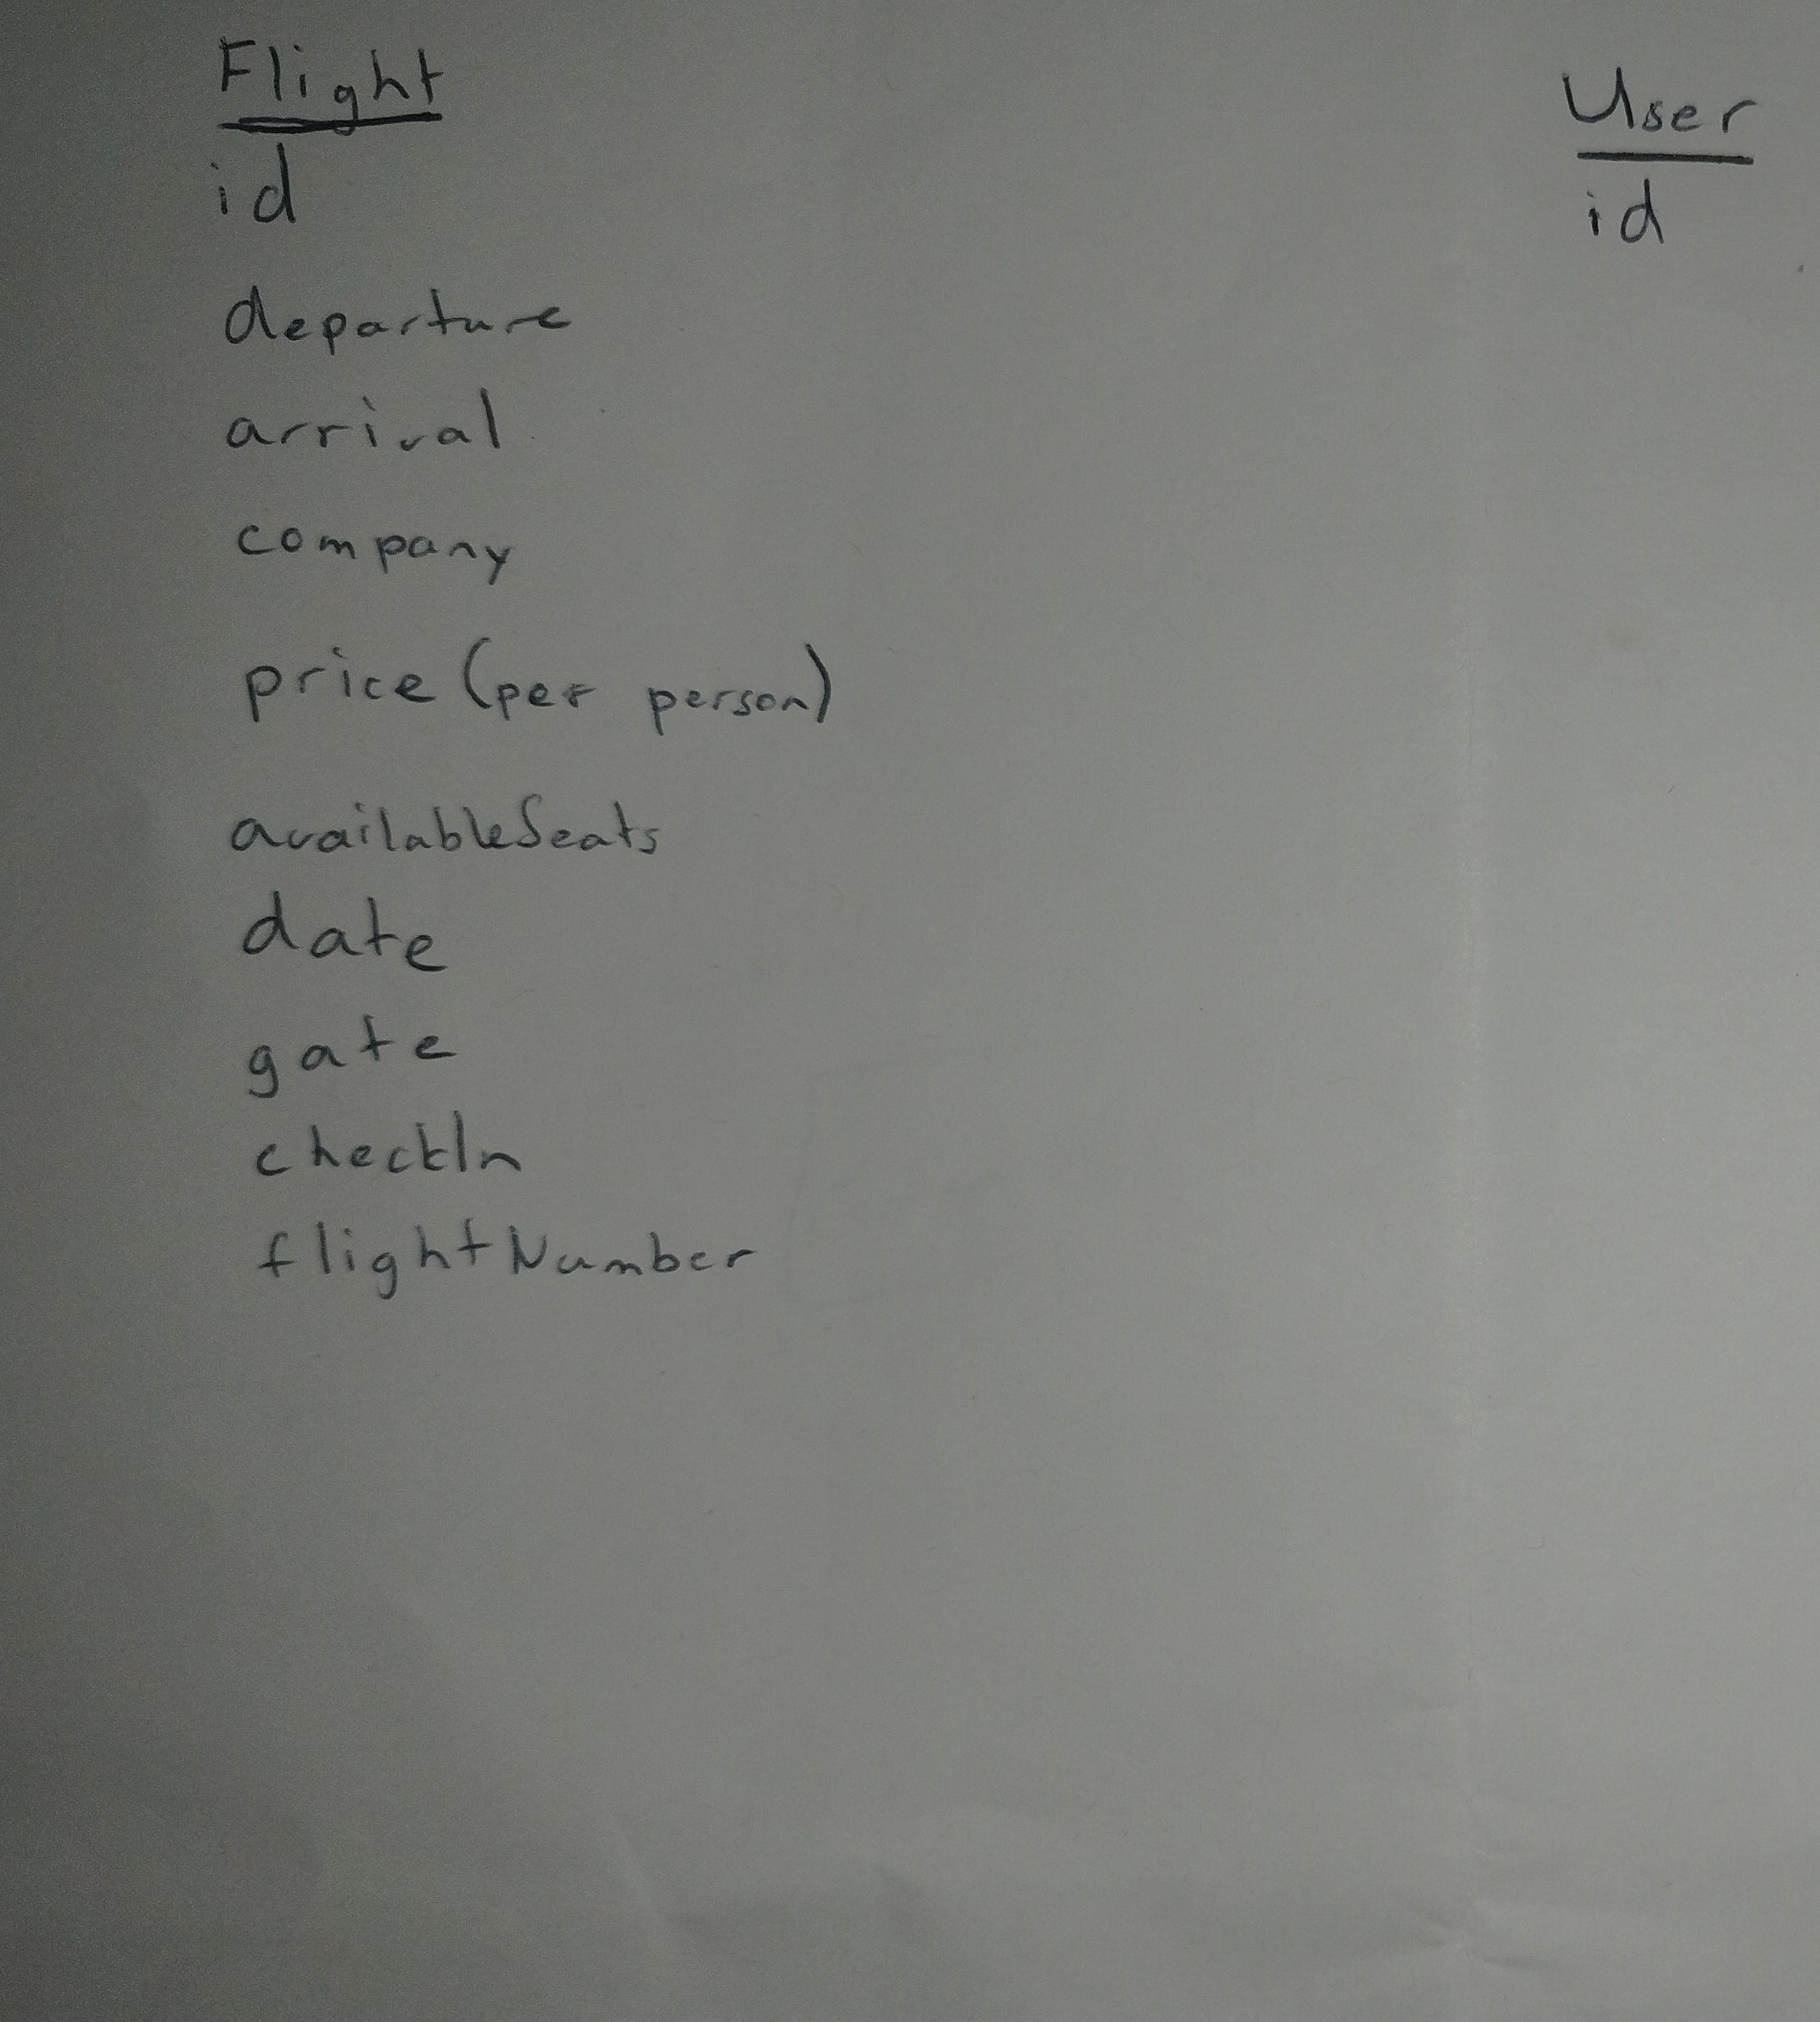 Flight
id
departure
arrival
company
price (per person)
availableSeats
date
gate
checkIn
flightNumber
User
id